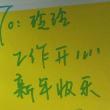 To：玲玲
工作开心
新年快乐